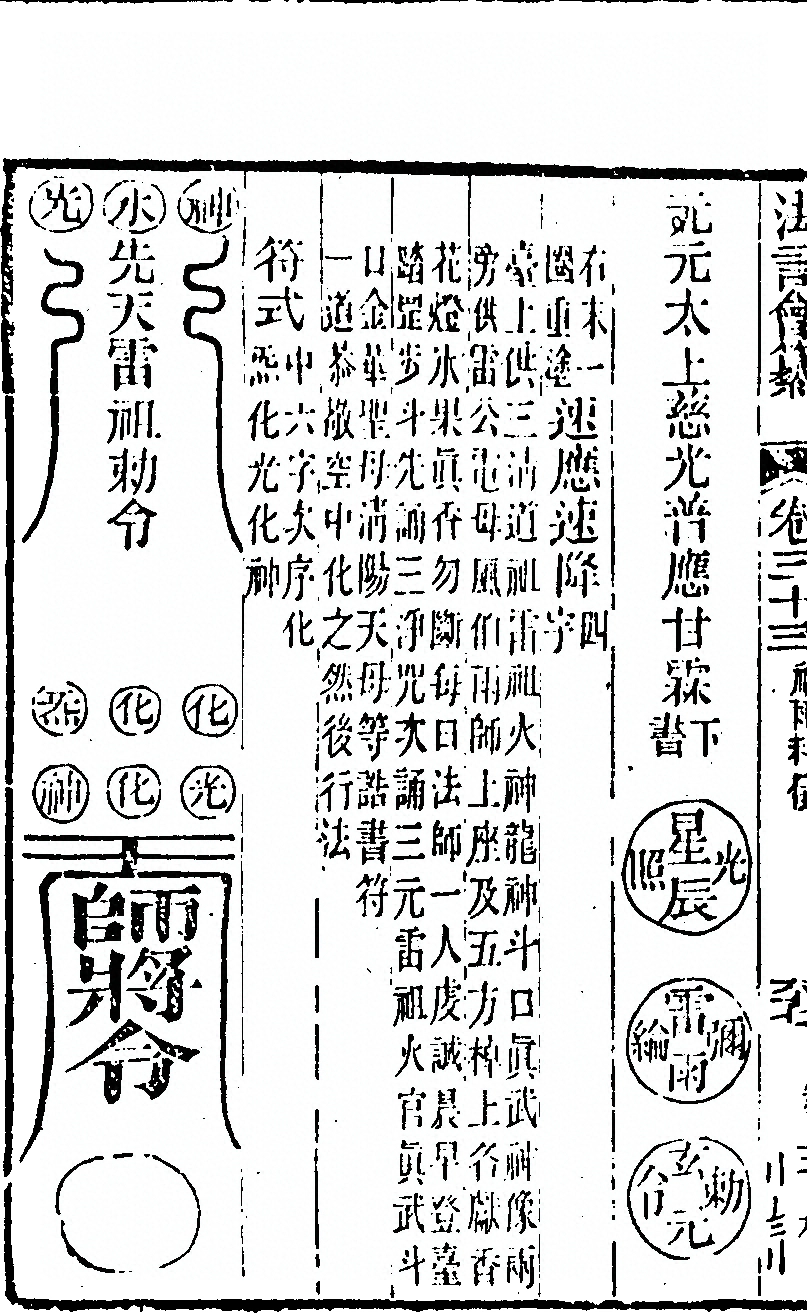 法言會纂 卷三十三 祈雨科儀
元太上慈光普應甘霖 下書 星辰光照 雷雨彌綸 玄元勅令
右末一
圈重塗
速應速降四
字
臺上供三清道祖雷祖火神龍神斗口眞武神像兩
旁供雷公電母風伯雨師上座及五方棹上各獻香
花燈水果眞香勿斷每日法師一人虔誠晨早登臺
踏罡步斗先誦三淨咒次誦三元雷祖火官眞武斗
口金華聖母清陽天母等誥書符
一道恭敬空中化之然後行法
符式
中六字次序化
炁化光化神
神 水 光
先天雷祖勅令
化 化 炁
光 化 神
師將令